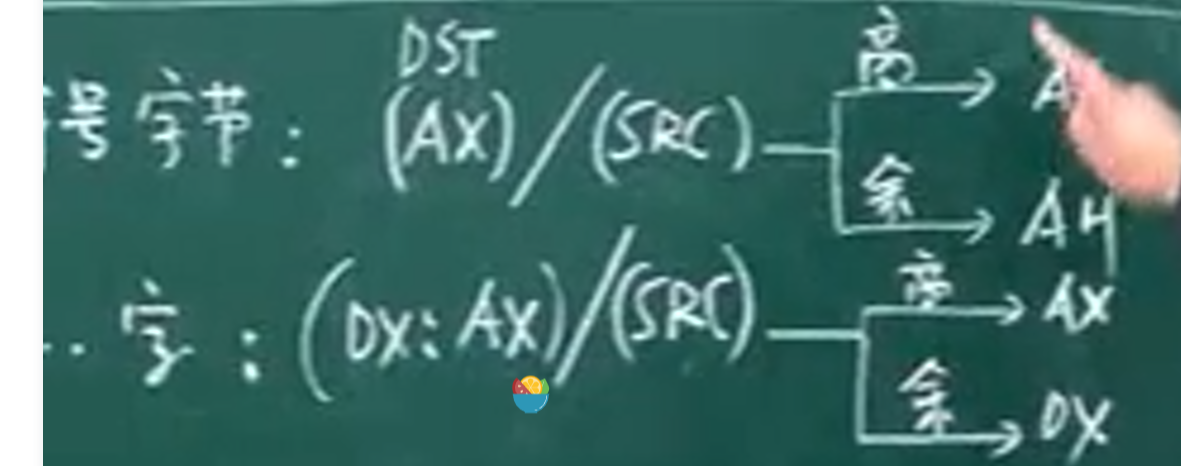 DST
号字节: (AX)/(SRC) 商 → A
余 → AH
.. 字: (DX:AX)/(SRC) 商 → AX
余 → DX